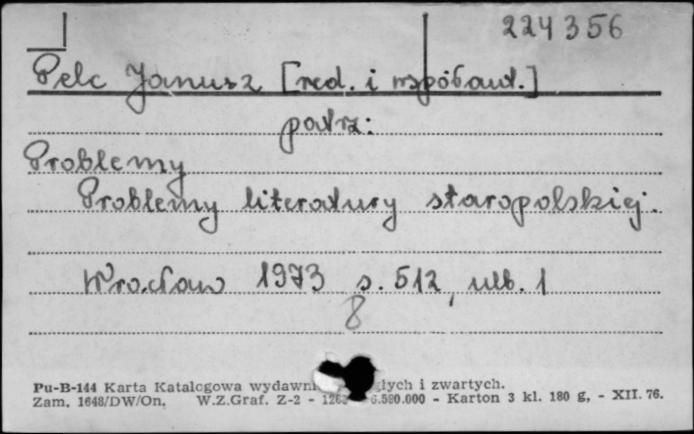 224356
Pelc Janusz [red. i współaut.]
patrz:
Problemy
Problemy literatury staropolskiej.
Wrocław 1973 s. 512, nlb. 1
8
Pu-B-144 Karta Katalogowa i zwartych.
Zam. 1648/DW/On. W.Z.Graf. Z-2 - - Karton 3 kl. 180 g, - XII. 76.